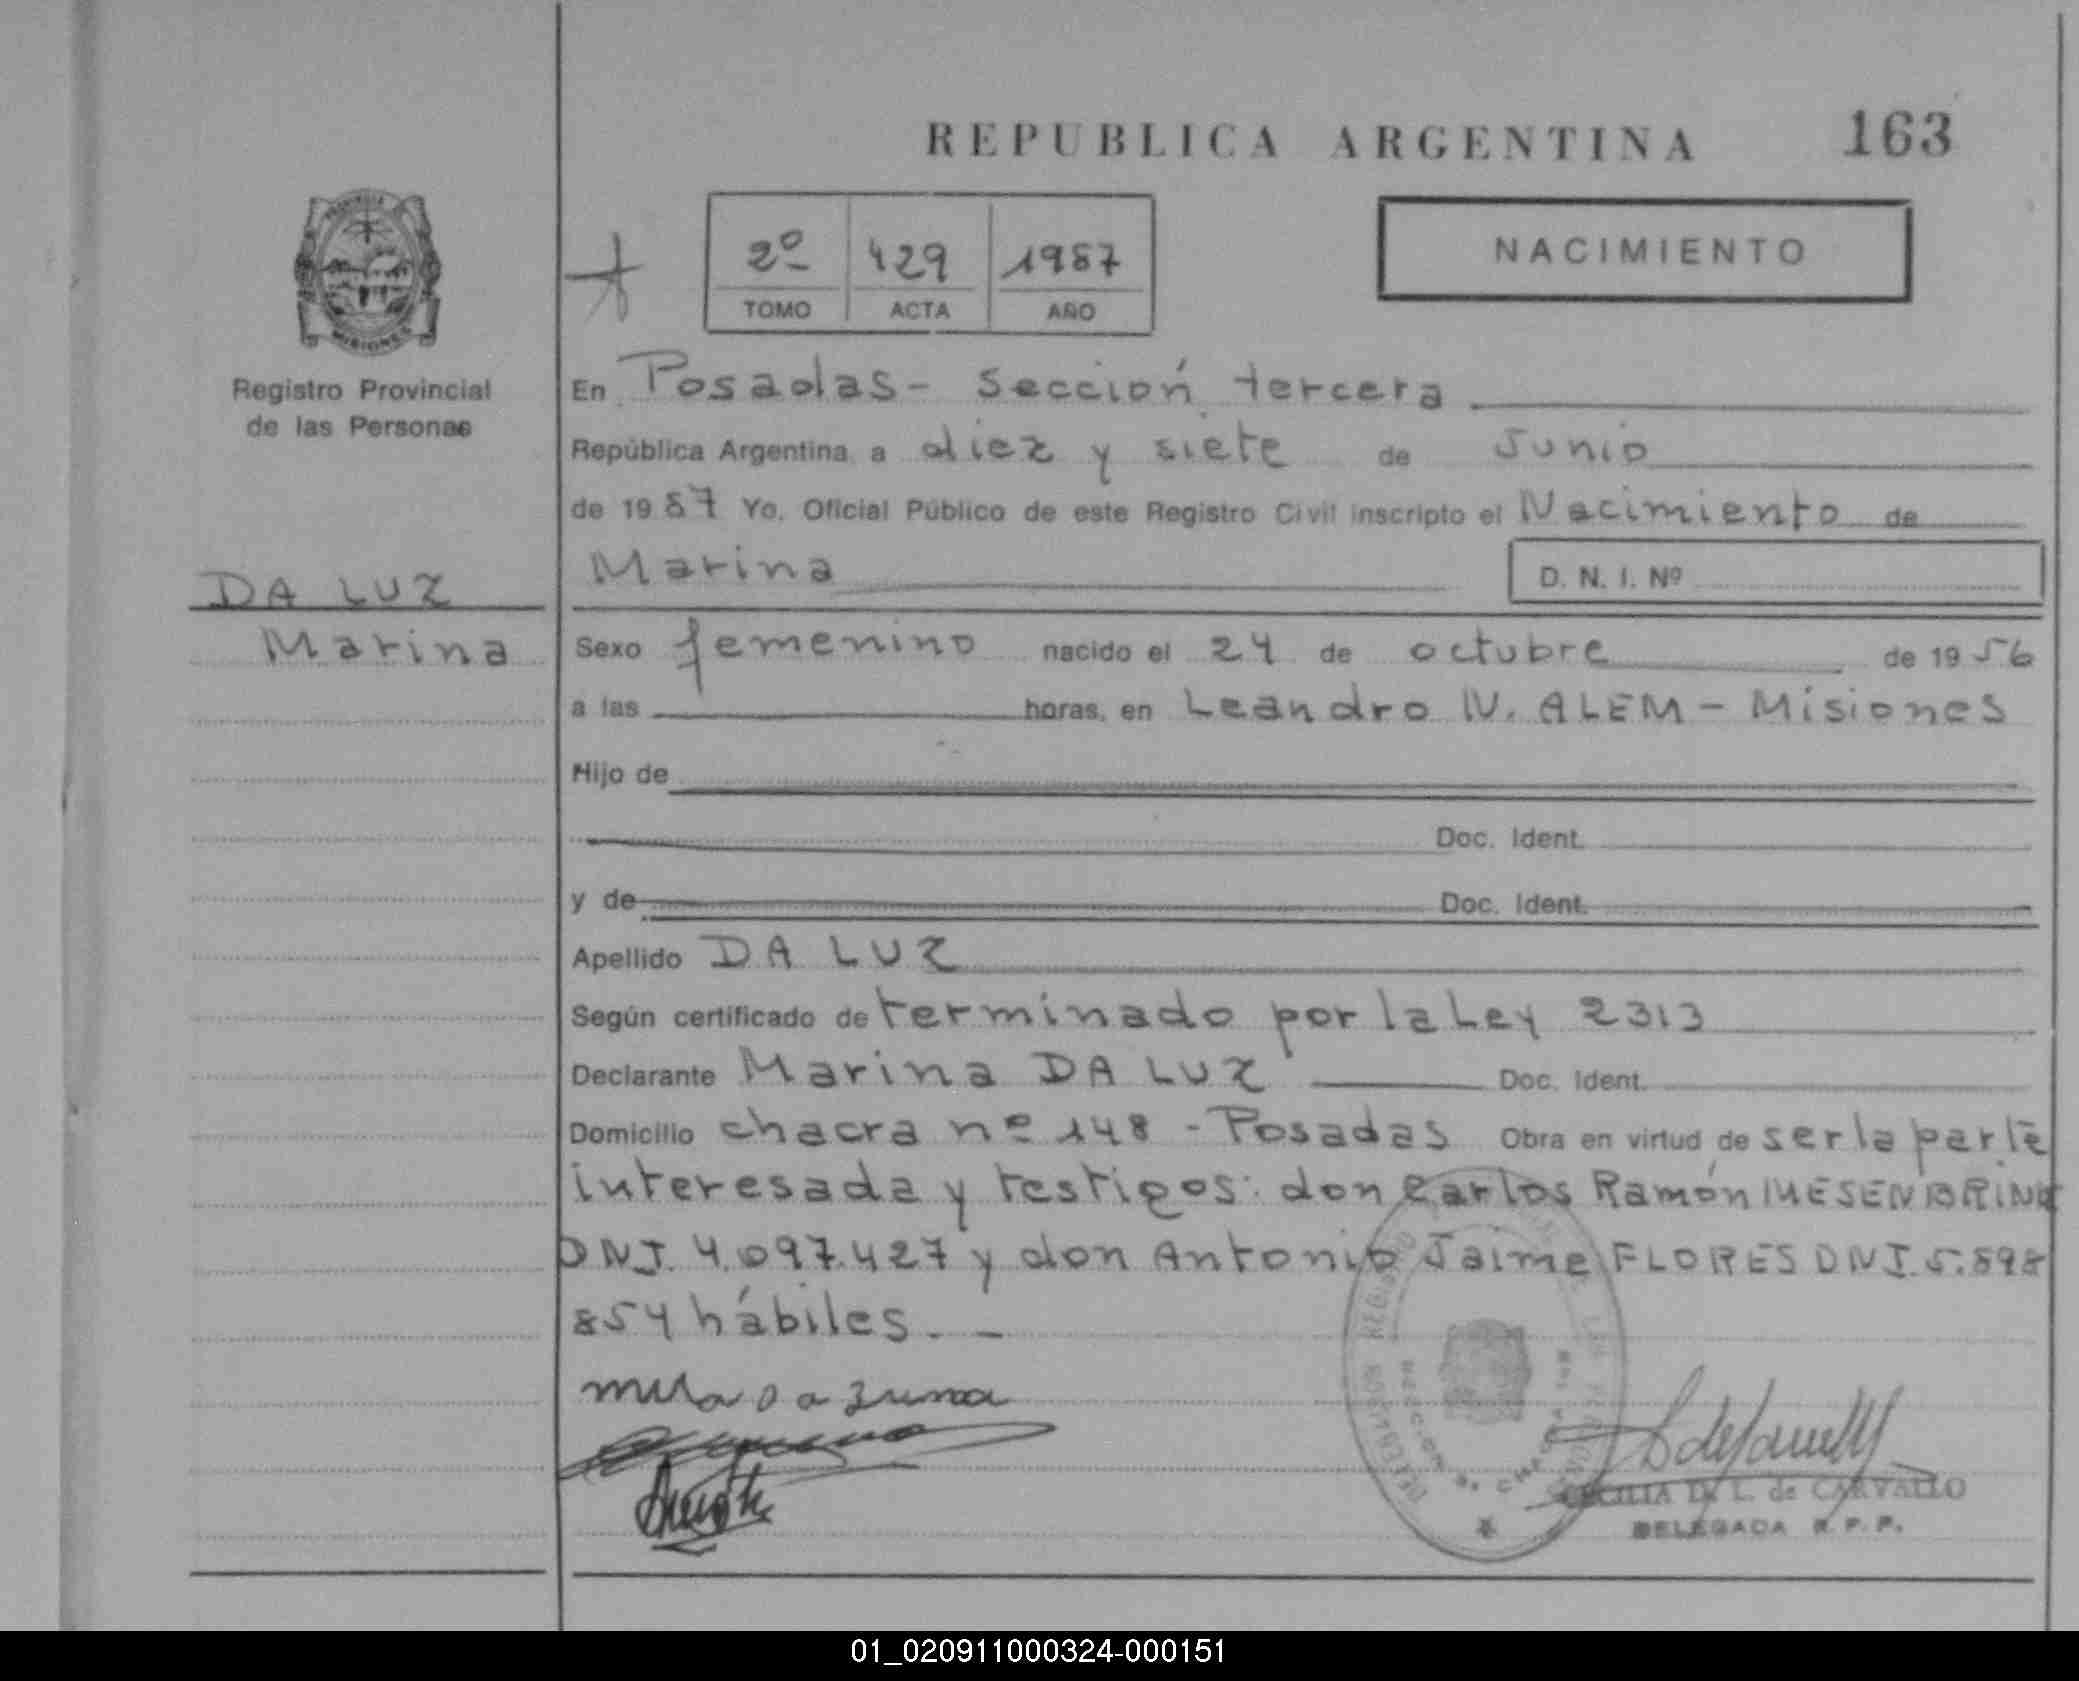 REPUBLICA ARGENTINA 163
2º 429 1987
TOMO ACTA AÑO
NACIMIENTO
PROVINCIA
MISIONES
Registro Provincial
de las Personas
DA LUZ
Marina
En Posadas - Sección tercera
República Argentina a diez y siete de Junio
de 1987 Yo, Oficial Público de este Registro Civil inscripto el Nacimiento de
Marina D. N. I. Nº
Sexo femenino nacido el 24 de octubre de 1956
a las horas, en Leandro N. ALEM - Misiones
Hijo de
Doc. Ident.
y de Doc. Ident.
Apellido DA LUZ
Según certificado de terminado por la Ley 2313
Declarante Marina DA LUZ Doc. Ident.
Domicilio chacra nº 148 - Posadas Obra en virtud de ser la parte
interesada y testigos: don Carlos Ramón MESENBRINK
DNI. 4.097.427 y don Antonio Jaime FLORES DNI. 5.898
854 hábiles. -
CECILIA L. de CARVALLO
DELEGADA R. P. P.
01_020911000324-000151